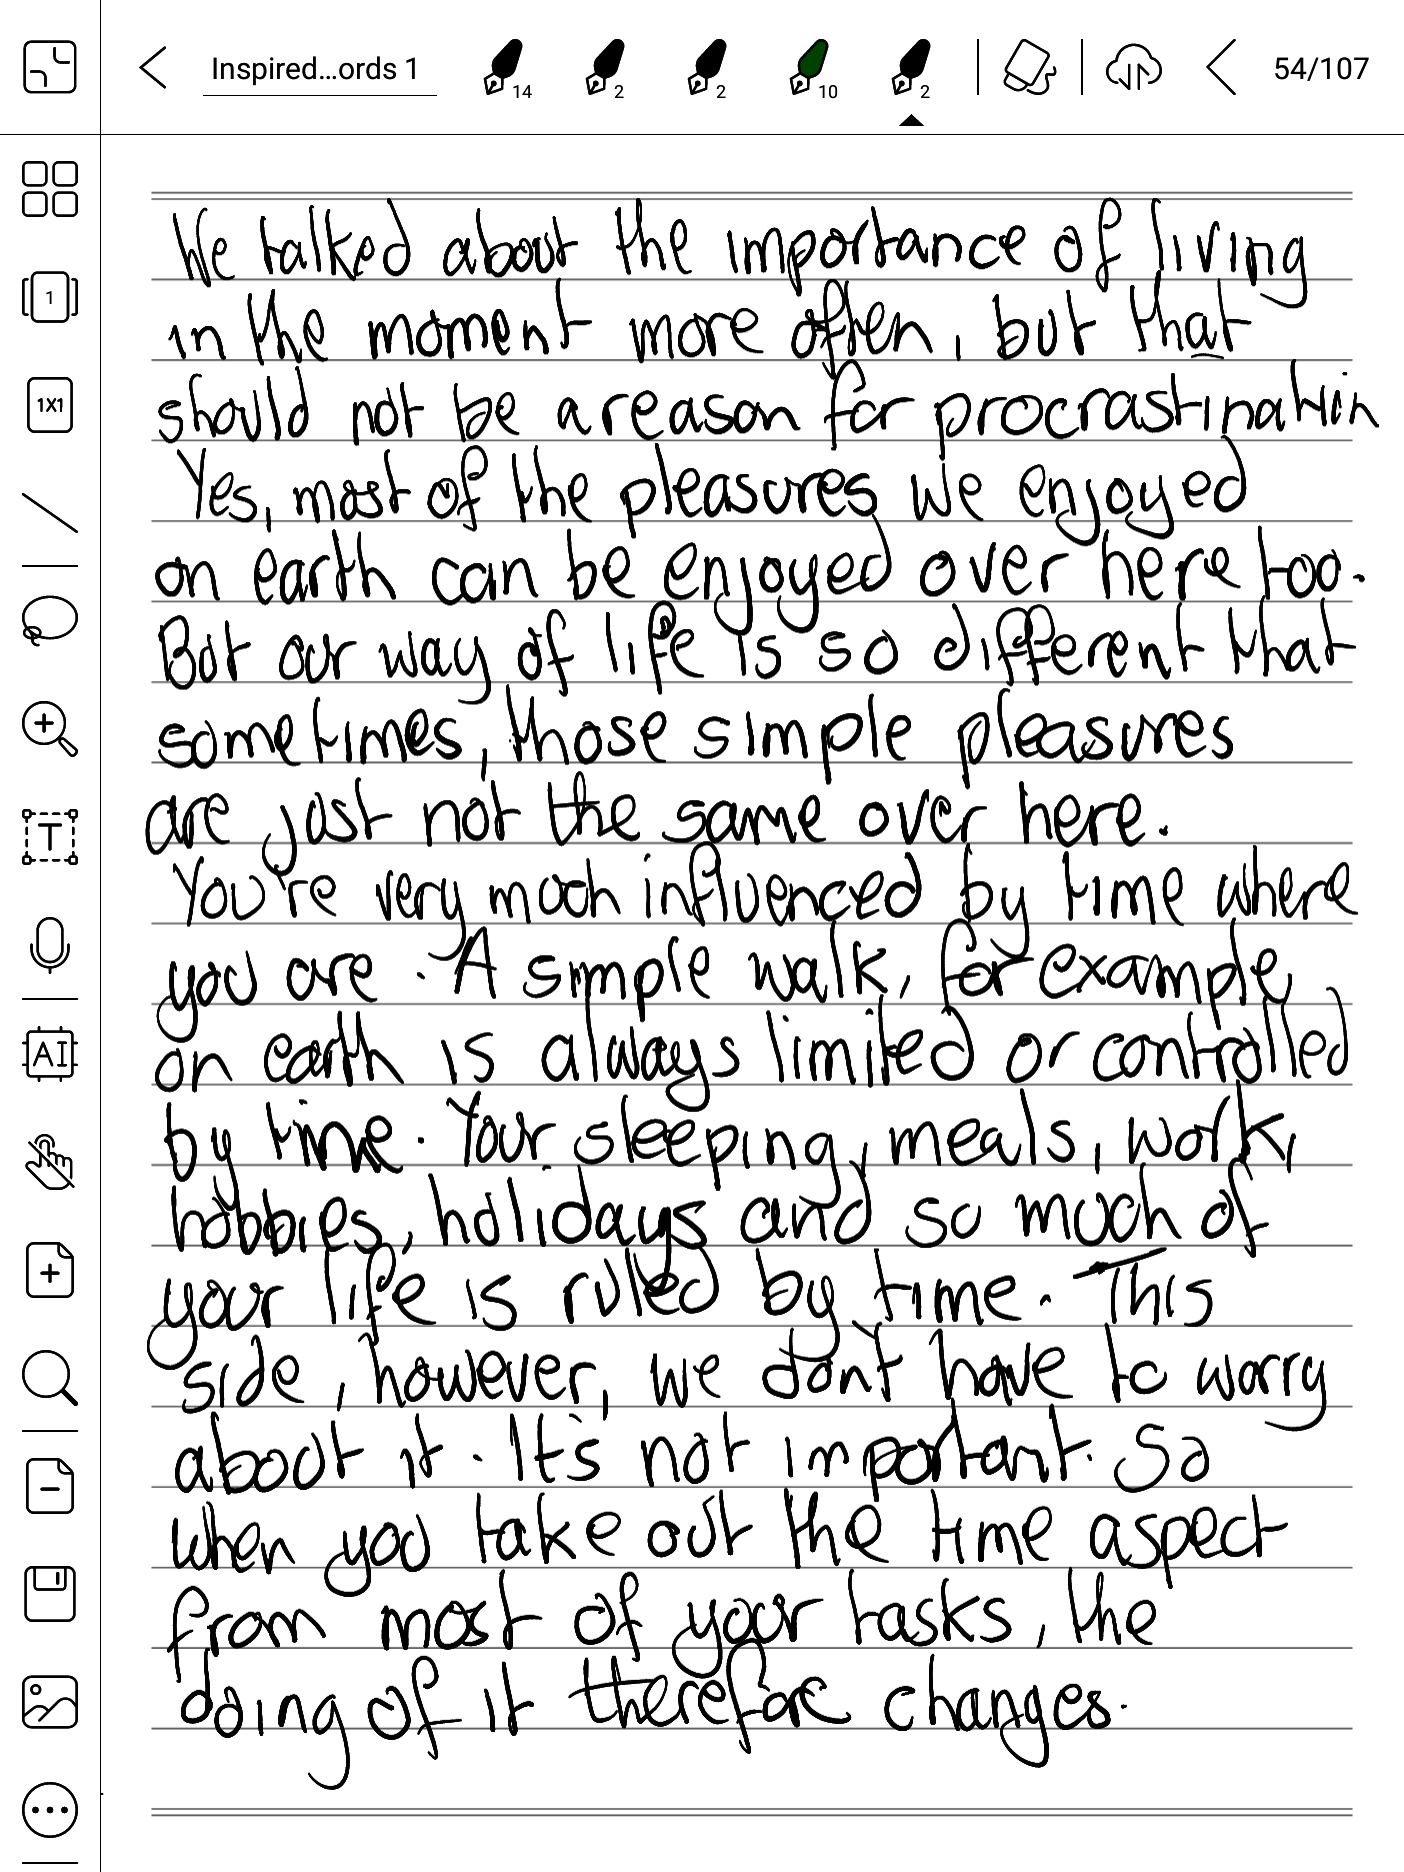 Inspired...ords 1
14
2
2
10
2
54/107
1
1X1
T
AI
We talked about the importance of living
in the moment more often, but that
should not be a reason for procrastination
Yes, most of the pleasures we enjoyed
on earth can be enjoyed over here too.
But our way of life is so different that
sometimes, those simple pleasures
are just not the same over here.
You're very much influenced by time where
you are. A simple walk, for example,
on earth is always limited or controlled
by time. Your sleeping, meals, work,
hobbies, holidays and so much of
your life is ruled by time. This
side, however, we don't have to worry
about it. It's not important. So
when you take out the time aspect
from most of your tasks, the
doing of it therefore changes.